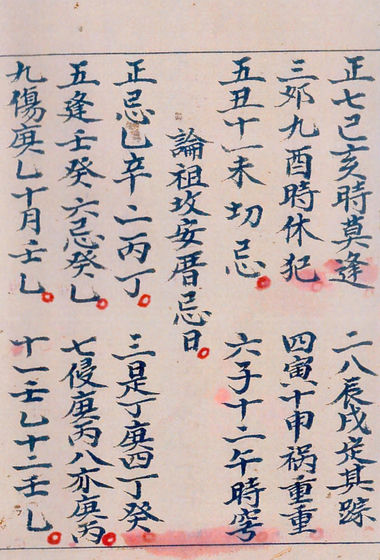 正七巳亥時莫逢
二八辰戌定其踪
三夘九酉時休犯
四寅十申禍重重
五丑十一未切忌
六子十二午時
論祖攻安厝忌日
正忌乙辛二丙丁
三是丁庚四丁癸
五逢壬癸六忌癸乙
七侵庚丙八亦庚丙
九傷庚乙十月壬乙
十一壬乙十二壬乙